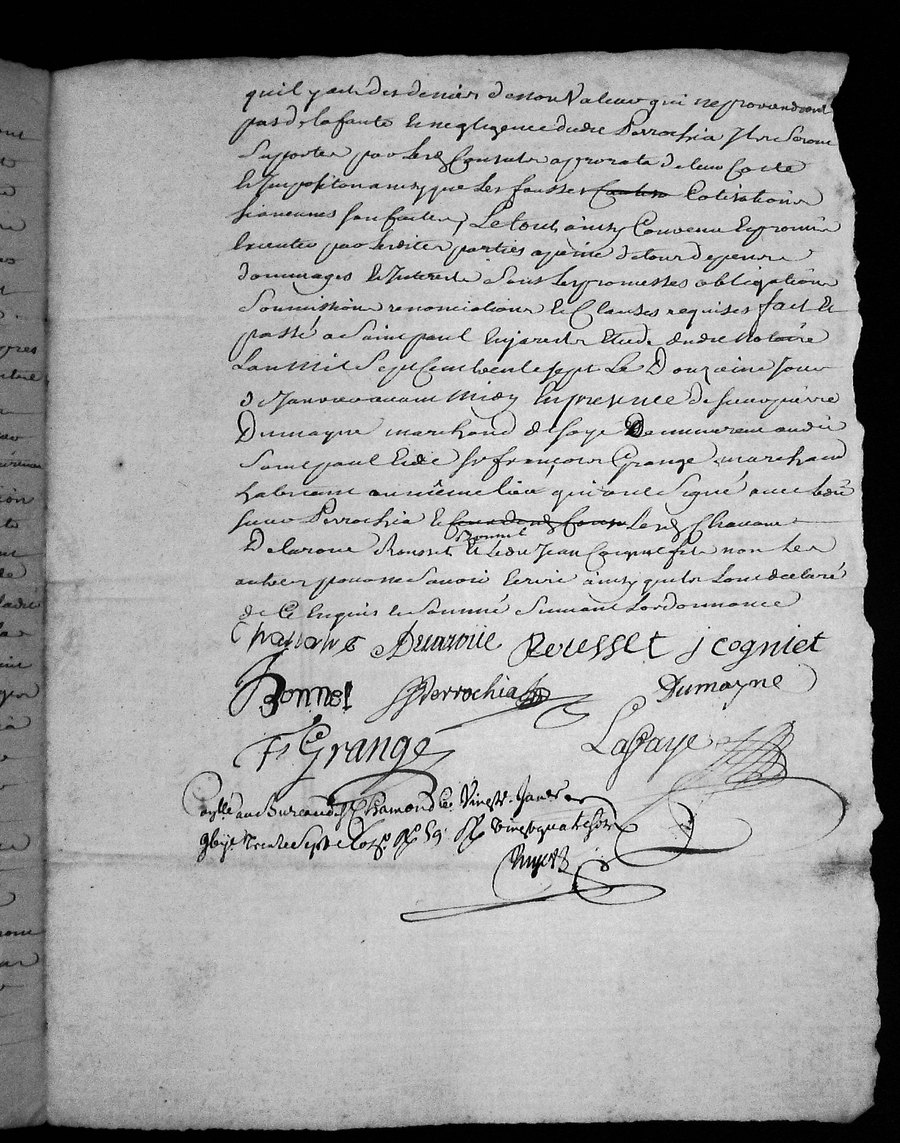 quil y aie des deniers de non Valeur qui ne proviendront
pas de la faute et negligence dudit Perrochia Ils Seront
Supportés par lesd Consuls au prorata de leur Cotte
et Imposition ainsy que les fausses Cotisations
si aucunes sont faites, Le tout ainsy Convenu et promis
Executer par lesdites parties a peine de tous depens
dommages et Interests Sous les promesses obligations
Soumissions renonciations et Clauses requises fait et
passé a Saint paul En Jarest Etude dudit Notaire
Lan Mil Sept Cent trente sept Le Douzieme Jour
de Janvier avant Midy En presence de sieur pierre
Dumayne marchand de soye Demeurant audit
Saint paul et de Sr françois Grange marchand
habitant au même lieu qui ont Signé avec ledit
sieur Perrochia et lesd Chavane
Delaroue Rousset Bonnel et ledit Jean Cogniet fils non les
autres pour ne Savoir Ecrire ainsy quils lont declaré
de Ce Enquis et Sommé Suivant Lordonnance
Chavane Delaroue Rousset j cogniet
Bonnel Perrochia Dumayne
Fs Grange Lafaye
au Bureau de St Chamond le Vingt Janvier
trente Sept vingt quatre sols